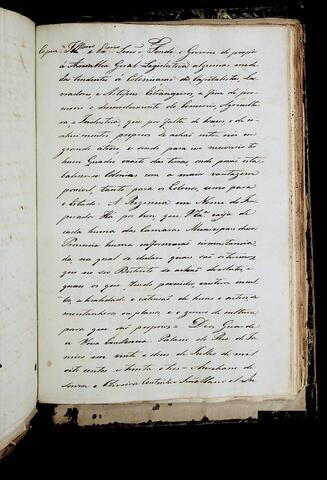 Copia Illmo e Exmo Senr Tendo o Governo de propor
á Assemblea Geral Legislativa algumas medi-
das tendentes á Colonisação de Capitalistas, La-
vradores, e Artifices Estrangeiros, a fim de pro-
mover o desenvolvimento do Comercio, Agricultu-
ra e Industria, que por falta de braços, e de co-
nhecimentos proprios se achão entre nós em
grande atrazo, e sendo para isso necessario te-
hum Quadro exacto das terras, onde possão esta-
belecer-se Colonias com a maior vantagem
possivel, tanto para os Colonos, como para
o Estado: A Regencia em Nome do Im-
perador Ha por bem que V. Exa. exija de
cada huma das Camaras Municipaes dessa
Provincia huma informação circunstancia-
da, na qual se declare quaes são os terrenos,
que no seu Districto se achão devolutos, e
quaes os que, tendo possuidor, existem incul-
tos, a localidade e extensão de huns e outros, se
montanhosos ou planos, e o genero de cultura
para que são proprios. Deos Guarde
a Vossa Excellencia. Palacio do Rio de Ja-
neiro em vinte e dous de Julho de mil
oito centos e trinta e tres = Aureliano de
Souza e Oliveira Coutinho = Senhor